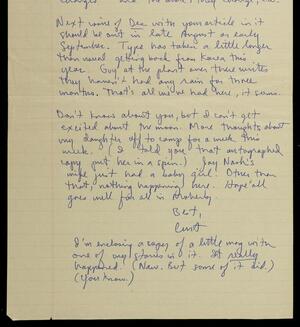 changes and the more, they change, etc.
Next issue of Dec with your article in it
should be out in late August or early
September. Type has taken a little longer
than usual getting back from Korea this
year. Guy at the plant over there writes
they haven't had any rain for three
months. That's all we've had here, it seems.
Don't know about you, but I can't get
excited about the moon. More thoughts about
my daughter off to camp for a week this
week. (I told you that autographed
copy put her in a spin.) Jay Nash's
wife just had a baby girl. Other than
that, nothing happening here. Hope all
goes well for all in Moherly
Best,
Curt
I'm enclosing a copy of a little mag with
one of my stories in it. It really
happened. (Naw. but some of it did.)
(You know.)